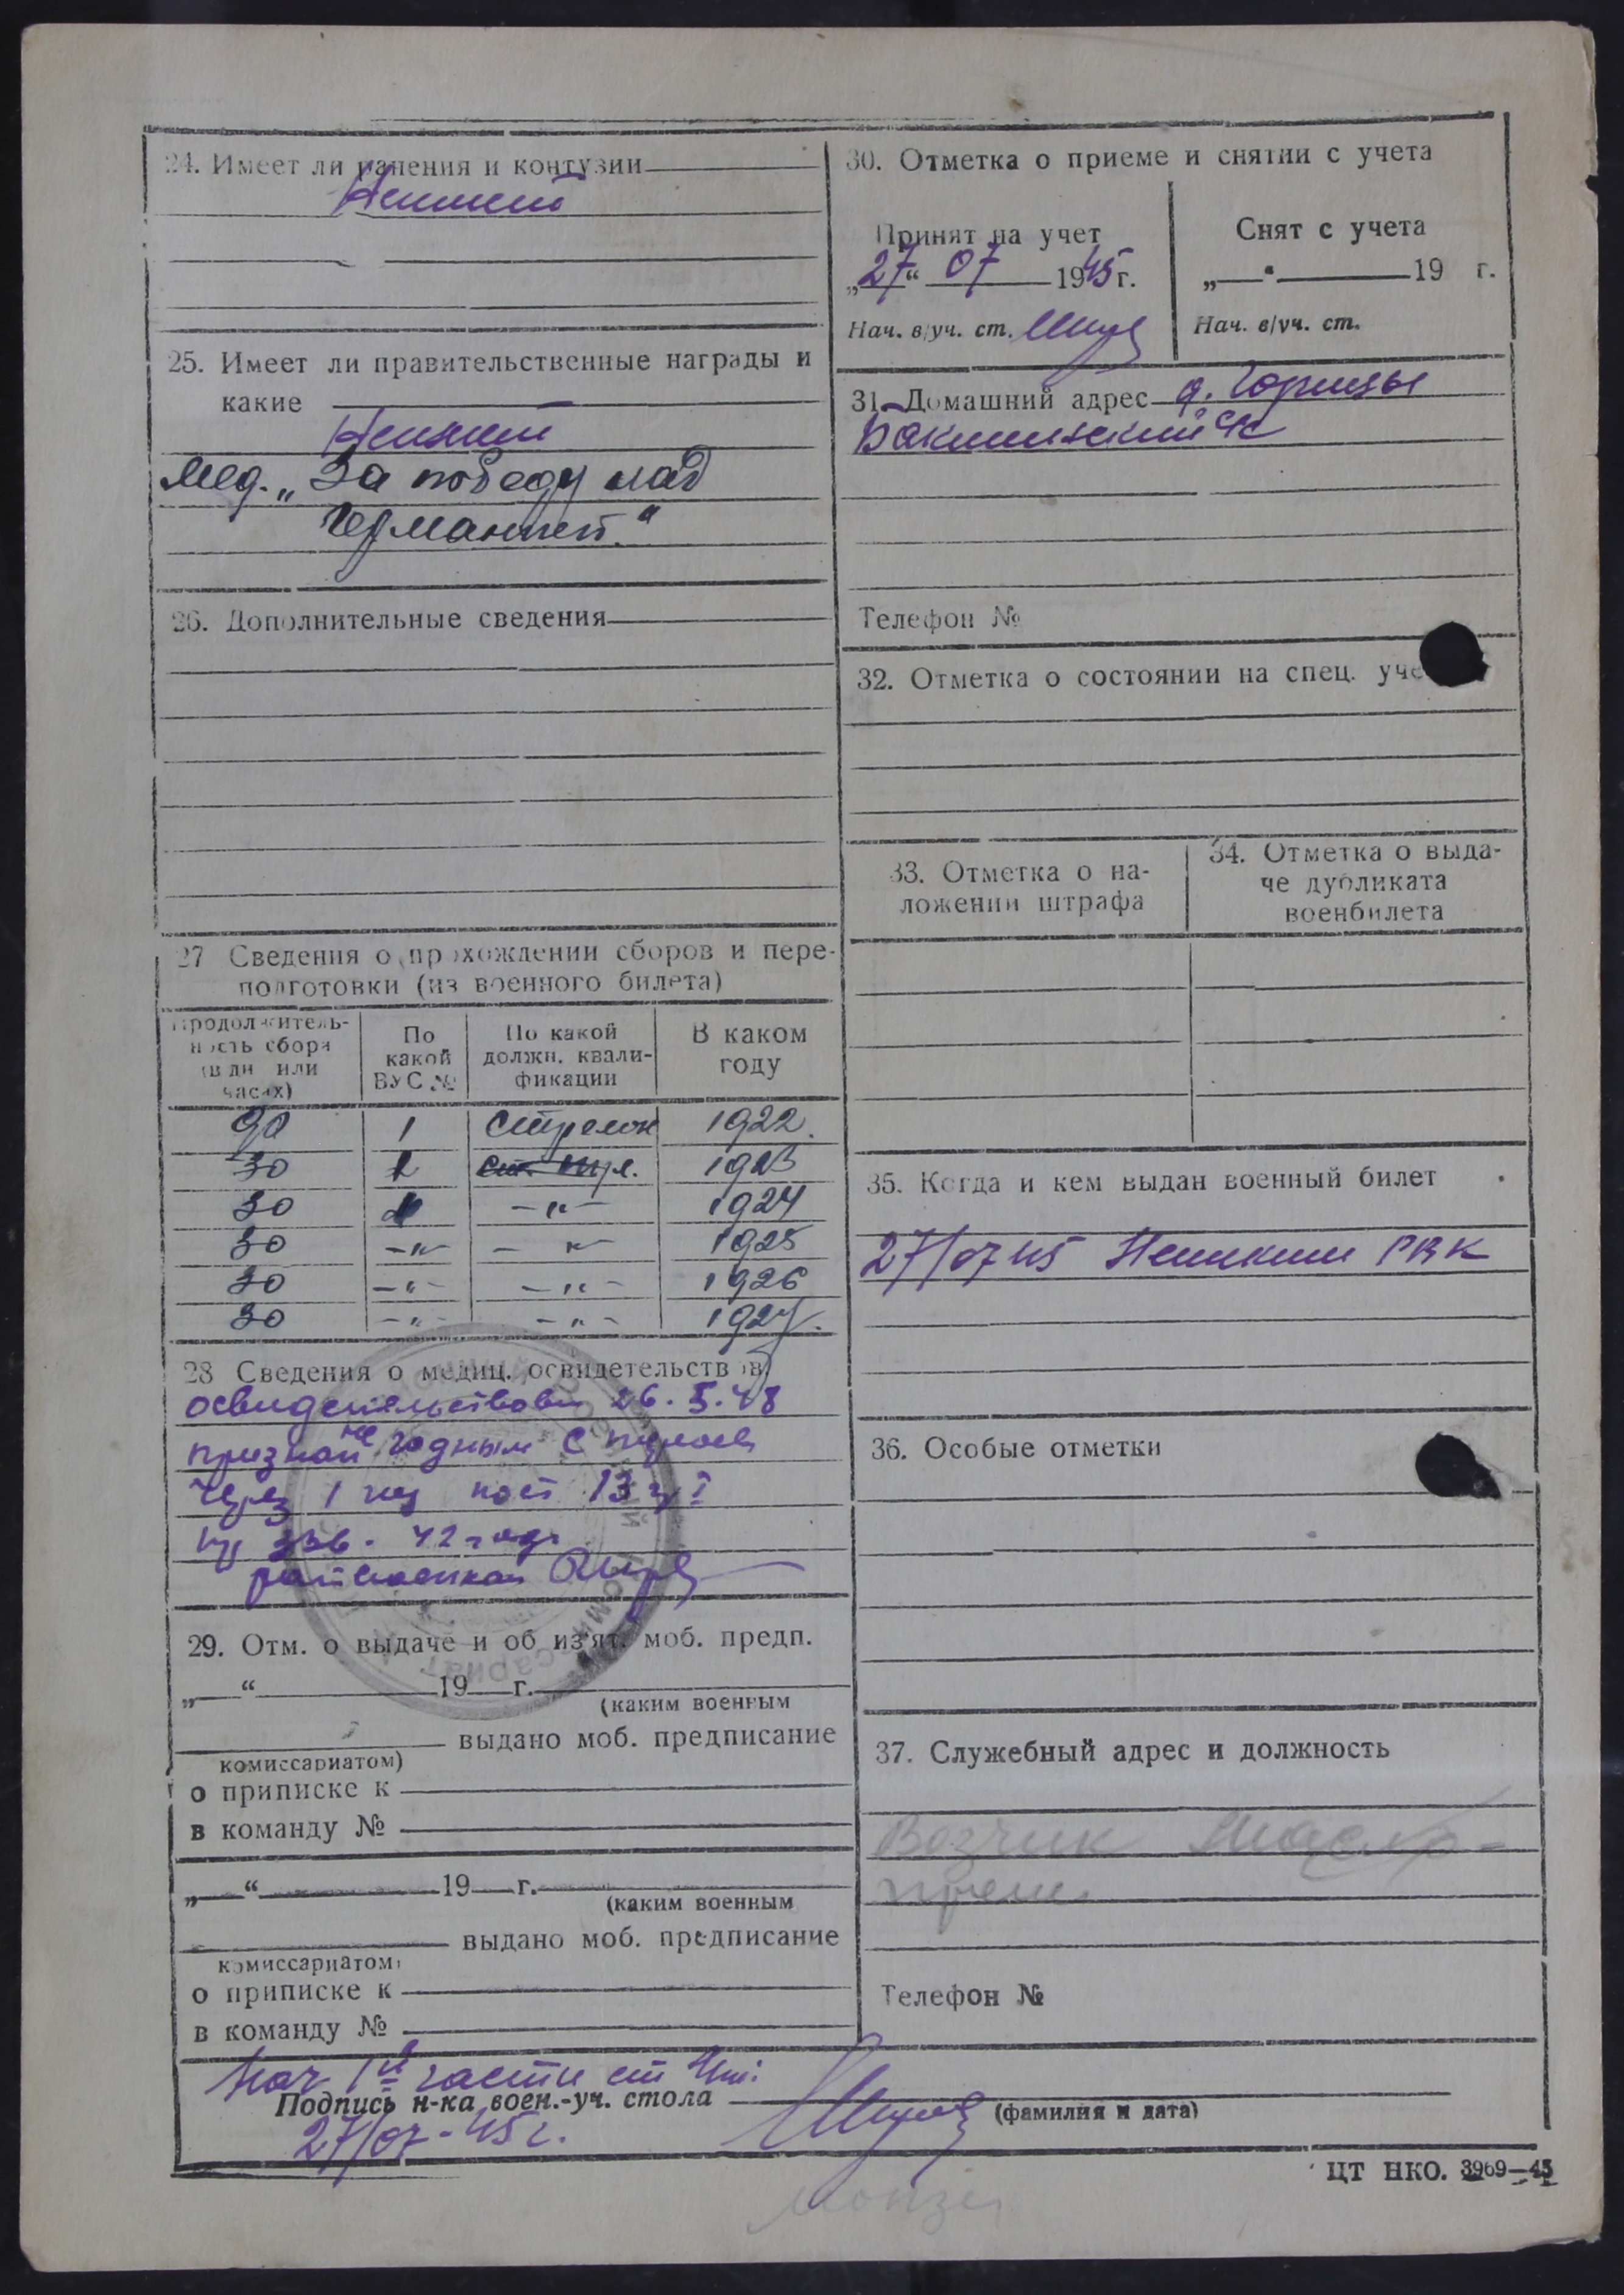 24. Имеет ли ранения и контузии
Не имеет
25. Имеет ли правительственные награды и
какие
Не имеет
мед. „За победу над
Германией."
26. Дополнительные сведения
27 Сведения о прохождении сборов и пере-
подготовки (из военного билета)
Продолжитель-
ность сбора
(в дн или
часах)
По
какой
ВУС №
По какой
должн. квали-
фикации
В каком
году
90 1 Стрелок 1922.
30 1923
30 -"- 1924
30 -"- -"- 1925
30 -"- -"- 1926
30 -"- -"- 1927.
28 Сведения о медиц. освидетельствов
освидетельствован 26. 5. 48
признан не годным с
через 1
29. Отм. о выдаче и об из'ят. моб. предп.
„ “ 19 г.
(каким военным
выдано моб. предписание
комиссариатом)
о приписке к
в команду №
„ “ 19 г.
(каким военным
выдано моб. предписание
комиссариатом)
о приписке к
в команду №
30. Отметка о приеме и снятии с учета
Принят на учет
„27“ 07 1945 г.
Нач. в/уч. ст.
Снят с учета
„ “ 19 г.
Нач. в/уч. ст.
31. Домашний адрес д.
Телефон №
32. Отметка о состоянии на спец. уче
33. Отметка о на-
ложении штрафа
34. Отметка о выда-
че дубликата
военбилета
35. Когда и кем выдан военный билет
27/07 45 РВК
36. Особые отметки
37. Служебный адрес и должность
Возчик Масло-
пром
Телефон №
Нач 1й части ст
Подпись н-ка воен.-уч. стола
(фамилия и дата)
27/07-45 г.
ЦТ НКО. 3969—45